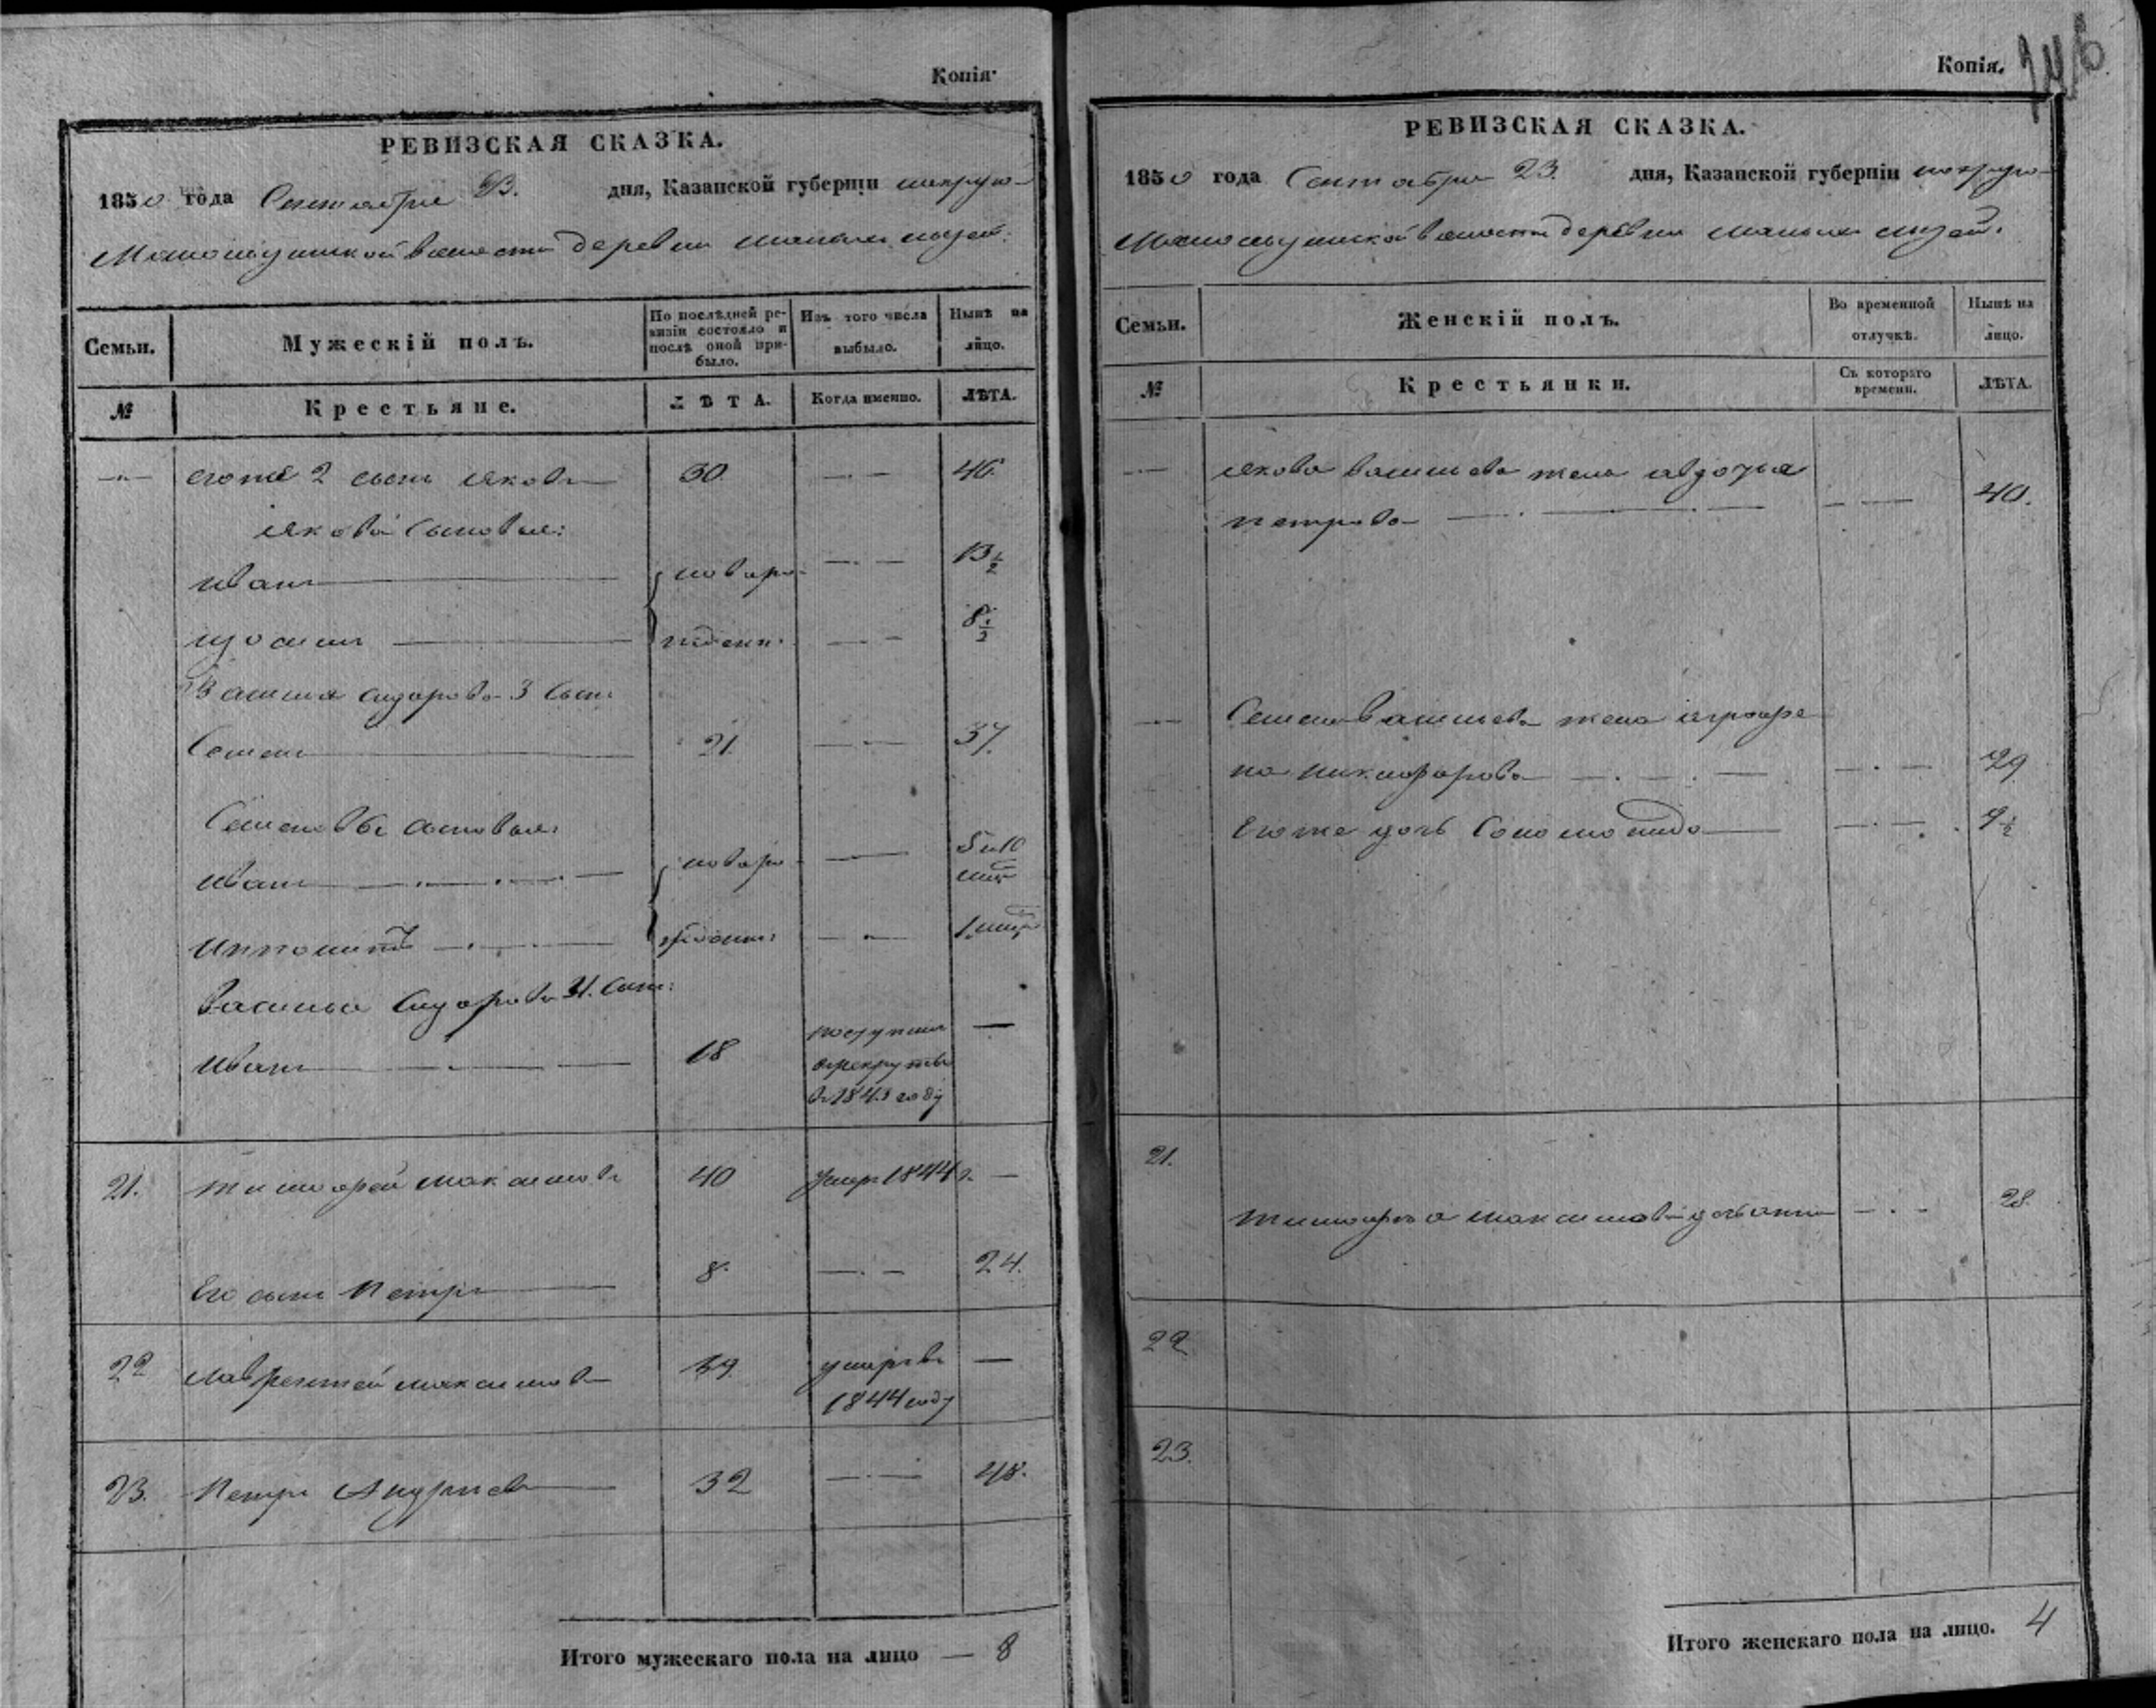 Копія.
РЕВИЗСКАЯ СКАЗКА.
1850 года Сентября 23. дня, Казанской губерніи
волости деревни
Семьи.
Мужескій полъ.
По послѣдней ревизіи состояло и послѣ оной прибыло.
Изъ того числа выбыло.
Нынѣ на лицо.
№
Крестьяне.
ЛѢТА.
Когда именно.
ЛѢТА.
его же 2 сынъ Яковъ 30 46.
Якова сыновья:
Иванъ новоро- 13 1/2
жденн. 8 1/2
Василья Сидорова 3 сынъ
Семенъ 21. 37.
Семеновы сыновья:
Иванъ новоро- 5 и 10
Ипполитъ жденны: 1
Василья Сидорова 4. сынъ:
Иванъ 18 поступил
в рекруты
в 184 году
21. Тимофей Максимовъ 40 умеръ 1844 г.
Его сынъ Петръ 8. 24.
22 Лаврентей Максимовъ 39. умеръ въ
1844 году
23. Петръ Андреевъ 32 48.
Итого мужескаго пола на лицо — 8
Копія.
РЕВИЗСКАЯ СКАЗКА.
1850 года Сентября 23. дня, Казанской губерніи
волости деревни
Семьи.
Женскій полъ.
Во временной отлучкѣ.
Нынѣ на лицо.
№
Крестьянки.
Съ котораго времени.
ЛѢТА.
Якова Васильева жена Авдотья
Петрова 40.
Семена Васильева жена Аграфе
на Никифорова 29
Его же дочь Соломонида
21.
Тимофея Максимова дочь Анна 28.
22
23.
Итого женскаго пола на лицо. 4